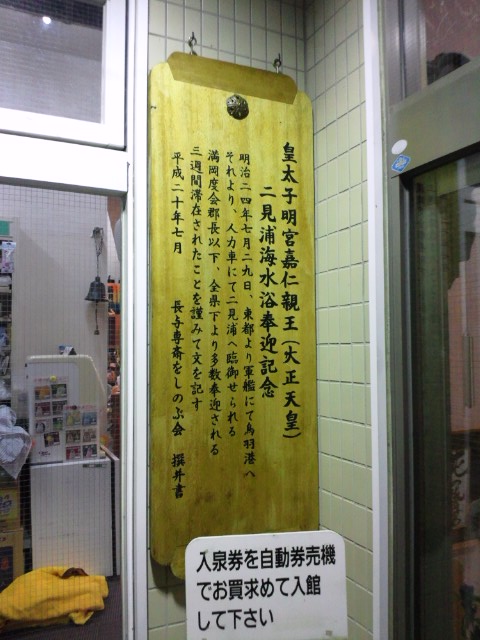 皇太子明宮嘉仁親王（大正天皇）
二見浦海水浴奉迎記念
明治二四年七月二九日、東都より軍艦にて鳥羽港へ
それより、人力車にて二見浦へ臨御せられる
満岡度会郡長以下、全県下より多数奉迎される
三週間滞在されたことを謹みて文を記す
平成二十年七月　長与専斎をしのぶ会　撰并書
入泉券を自動券売機
でお買求めて入館
して下さい